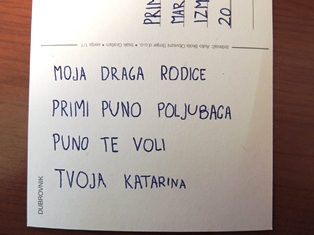 MOJA DRAGA RODICE
PRIMI PUNO POLJUBACA
PUNO TE VOLI
TVOJA KATARINA
DUBROVNIK
PRIM
MAR
IZM
20